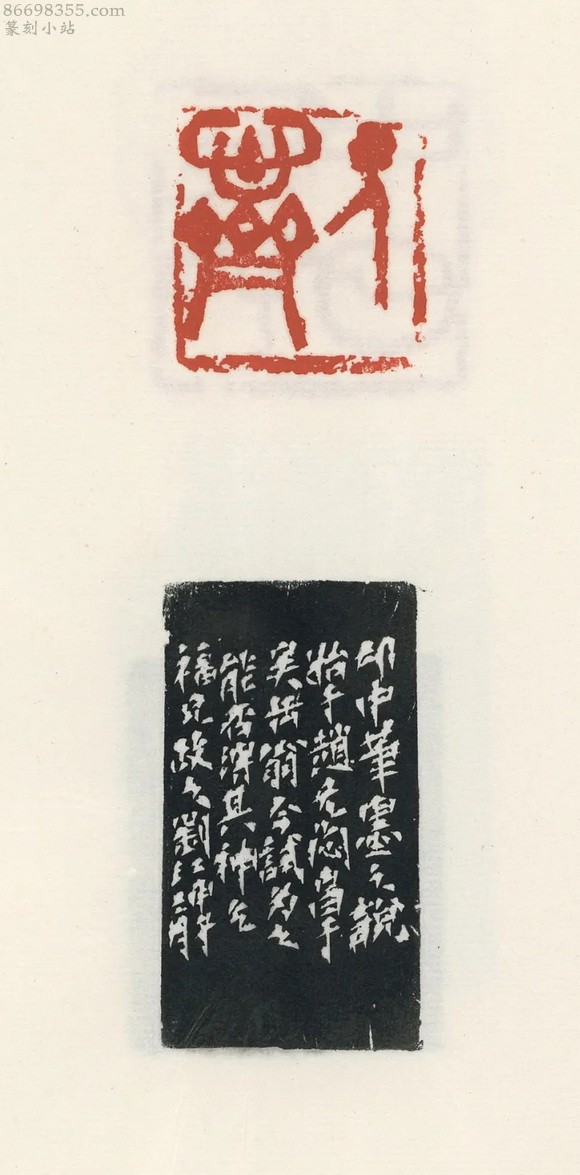 86698355.com
篆刻小站
印中筆墨之說
始于趙无悶于
吳缶翁今試为之
能否得其神乞
福兄政之劉江